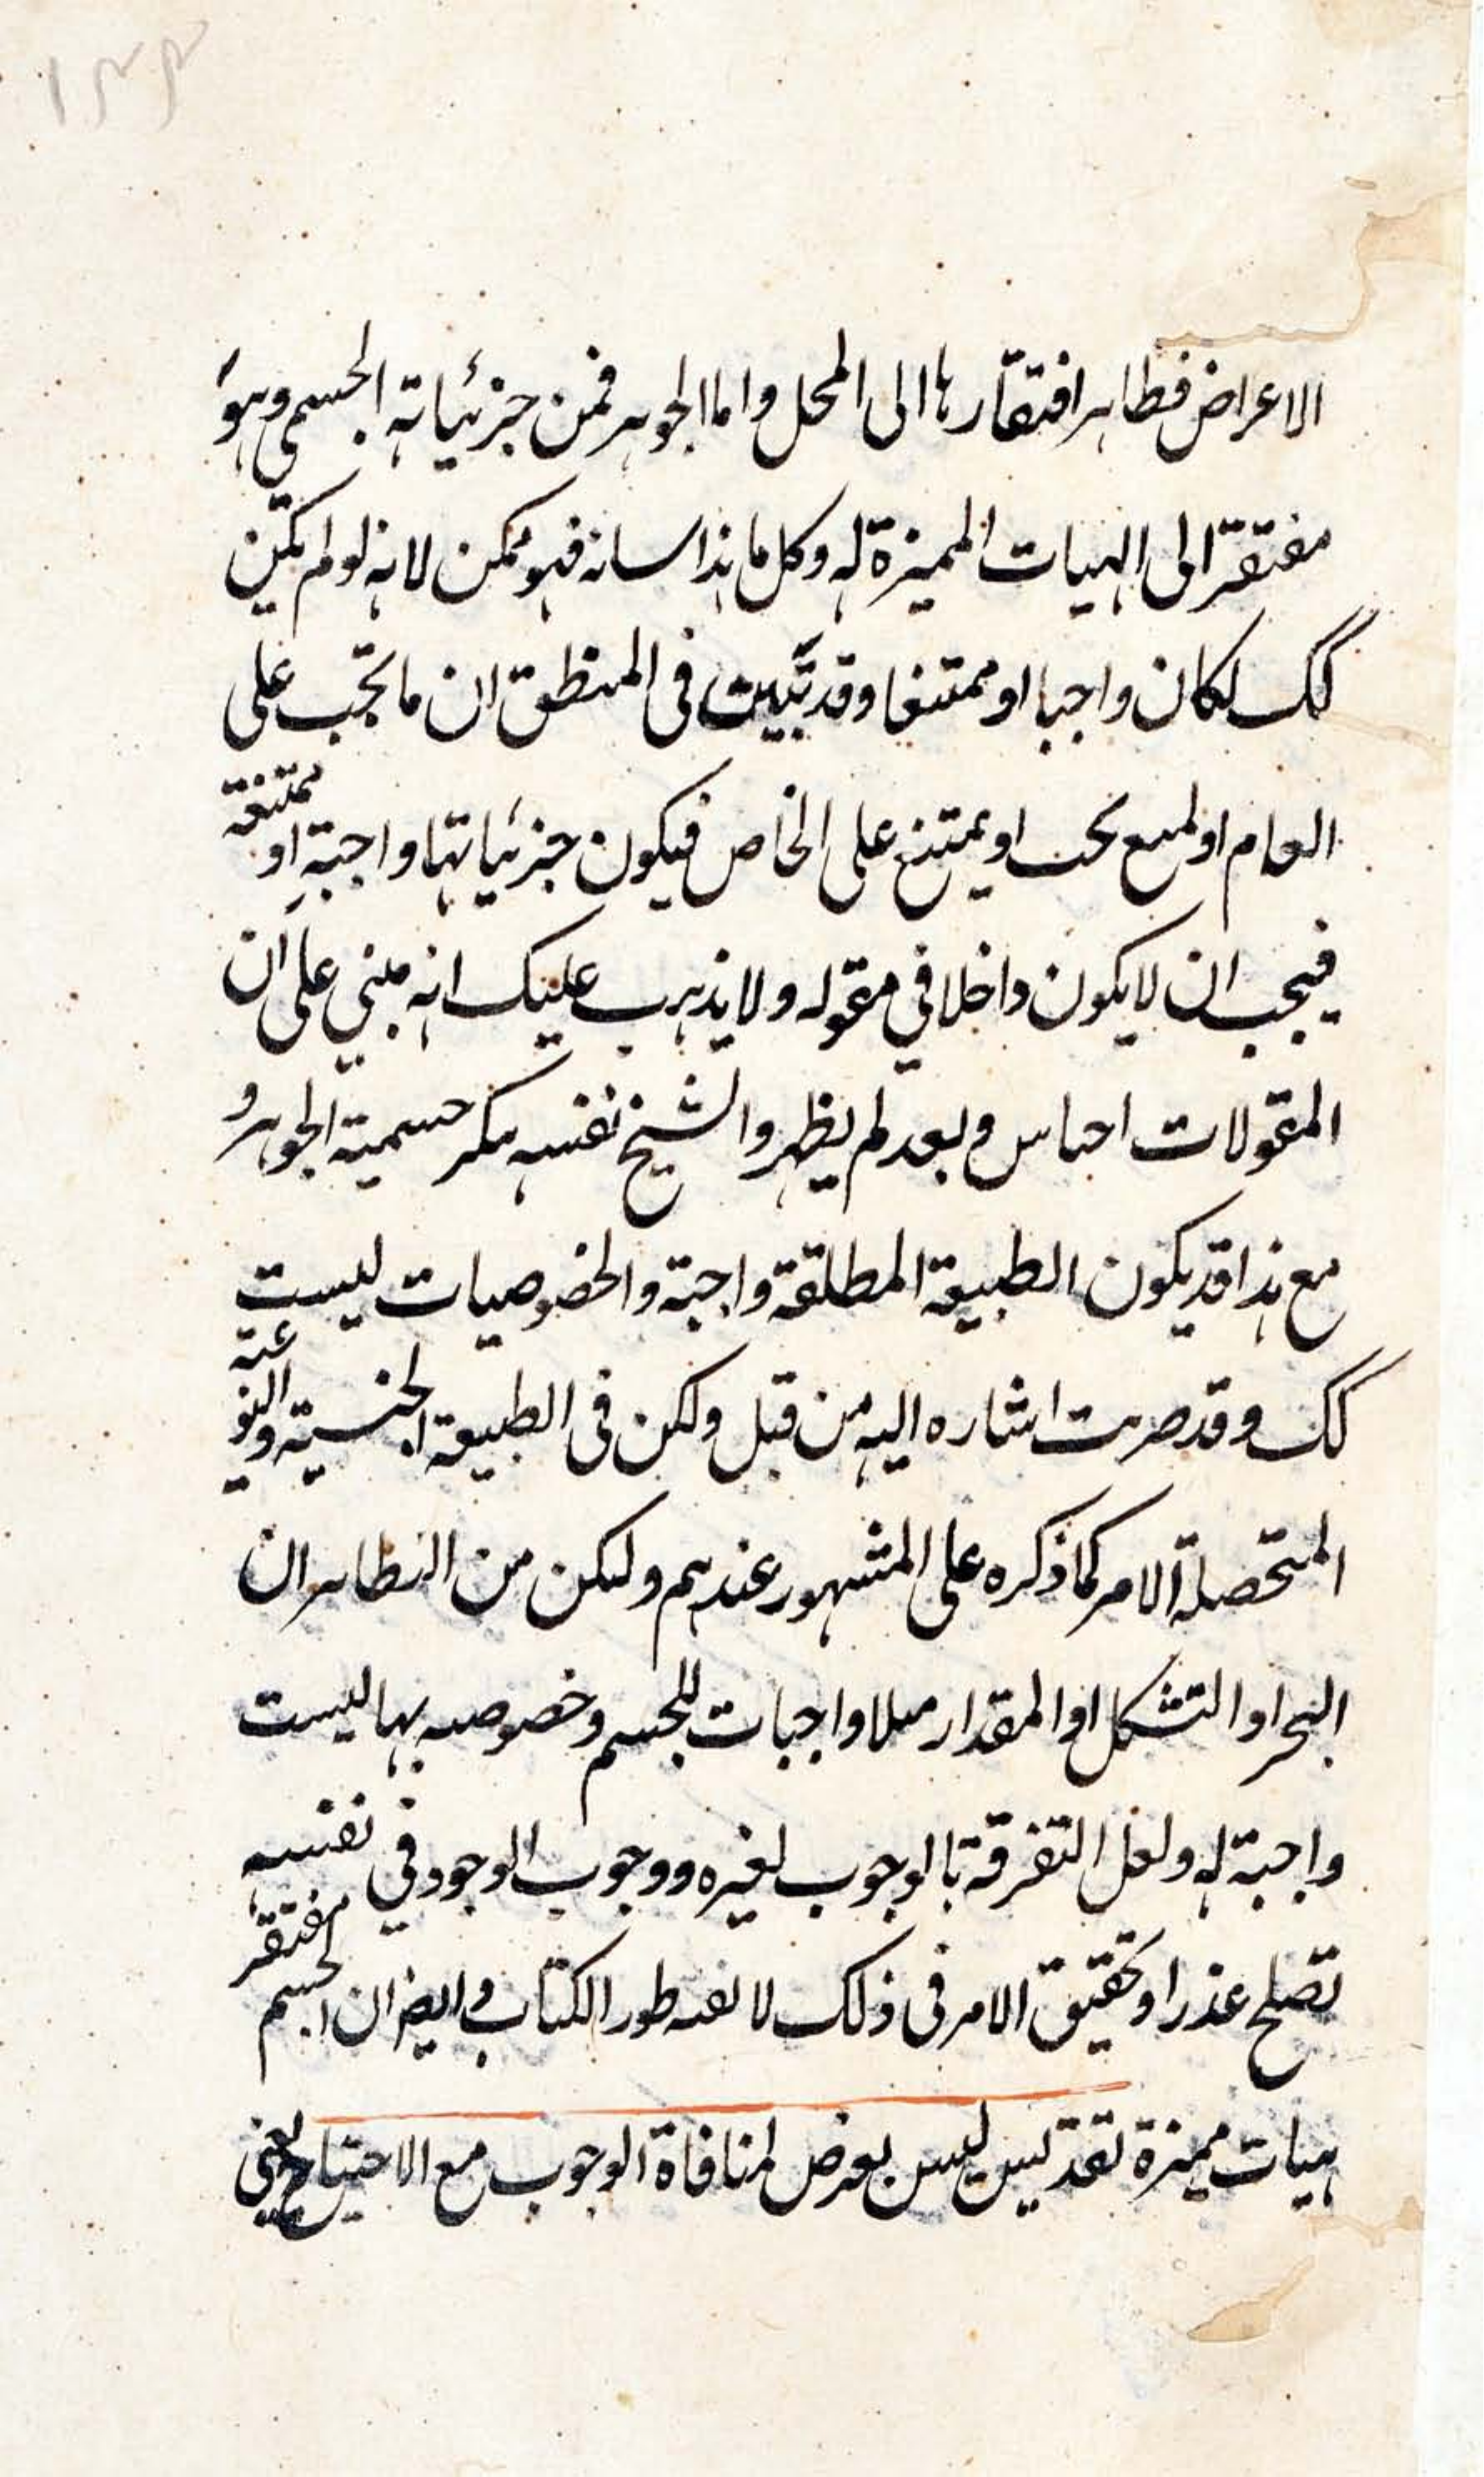 ١٣٣
الاعراض فظاهر افتقارها الى المحل واما الجوهر فمن جزئياته الجسم وهو
مفتقر الى الهيات المميزة له وكل ما هذا سانه فهو ممكن لانه لو لم تكن
كك لكان واجبا او ممتنعا وقد تبين في المنطق ان ما تجب على
العام او يمتنع يجب او يمتنع على الخاص فيكون جزئياتها واجبة او ممتنعة
فيجب ان لا يكون داخلا في مقوله ولا يذهب عليك انه مبني على ان
المقولات اجناس وبعد لم يظهر والشيخ نفسه منكر جنسية الجوهر و
مع هذا قد يكون الطبيعة المطلقة واجبة والخصوصيات ليست
كك وقد مرت اشاره اليه من قبل ولكن في الطبيعة الجنسية والنوعية
المتحصلة الامر كما ذكره على المشهور عندهم ولكن من الظاهر ان
التحيز او التشكل او المقدار مثلا واجبات للجسم وخصوصياتها ليست
واجبة له ولعل التفرقة بالوجوب لغيره ووجوب الوجود في نفسه
تصلح عذرا وتحقيق الامر في ذلك لا يفيه طور الكتاب وايضا ان الجسم مفتقر
هيات مميزة لقد تيس ليس بعرض لمنافاة الوجوب مع الاحتياج يعني